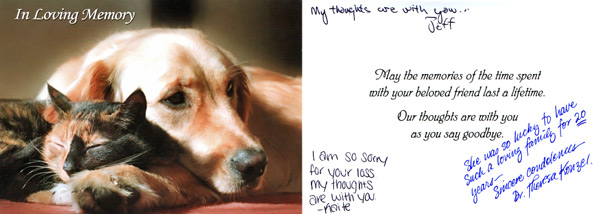 In Loving Memory
My thoughts are with you...
Jeff
May the memories of the time spent
with your beloved friend last a lifetime.
Our thoughts are with you
as you say goodbye.
I am so sorry
for your loss
My thoughts
are with you.
She was so lucky to have
such a loving family for 20
years-
Sincere condolences
Dr. Theresa